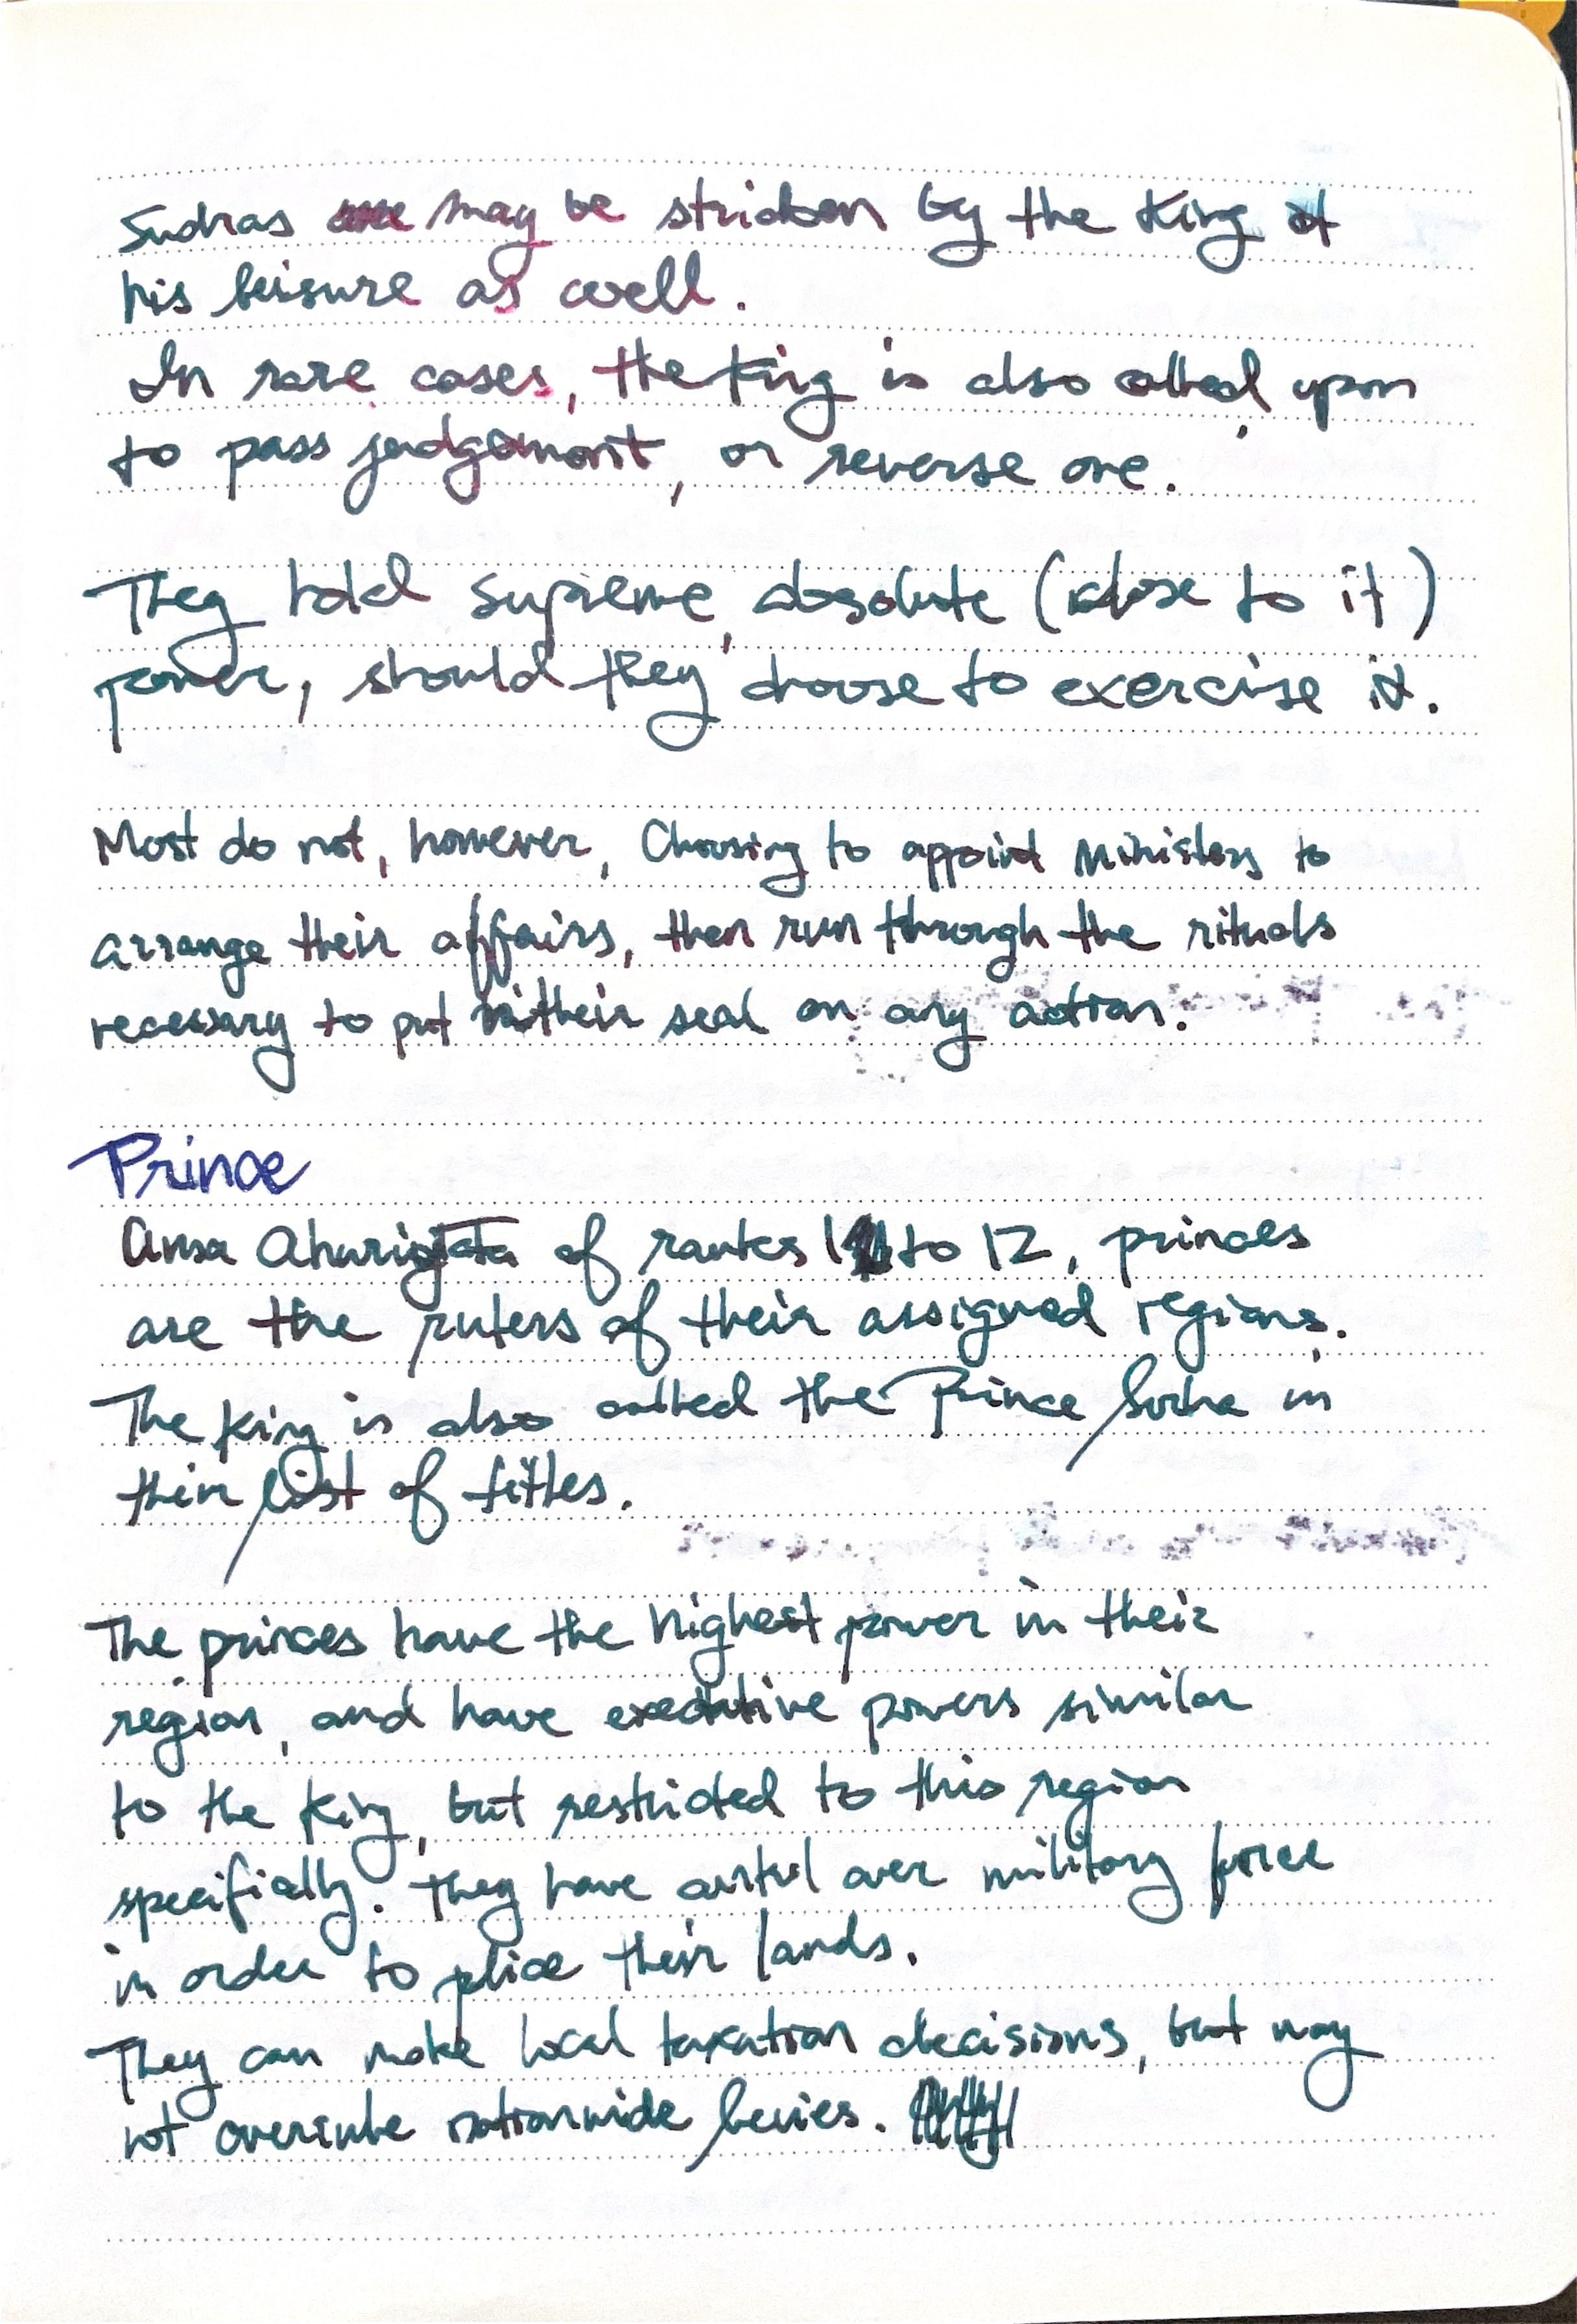 Sudras may be stricken by the King at
his leisure as well.
In rare cases, the King is also called upon
to pass judgement, or reverse one.
They hold supreme, absolute (close to it)
power, should they choose to exercise it.
Most do not, however, Choosing to appoint Ministers to
arrange their affairs, then run through the rituals
necessary to put their seal on any action.
Prince
of ranks to 12, princes
are the rulers of their assigned regions.
The King is also called the Prince in
their list of titles.
The princes have the highest power in their
region, and have executive powers similar
to the King, but restricted to this region
specifially. They have control over military force
in order to police their lands.
They can make local taxation decisions, but may
not overrule nationwide levies.